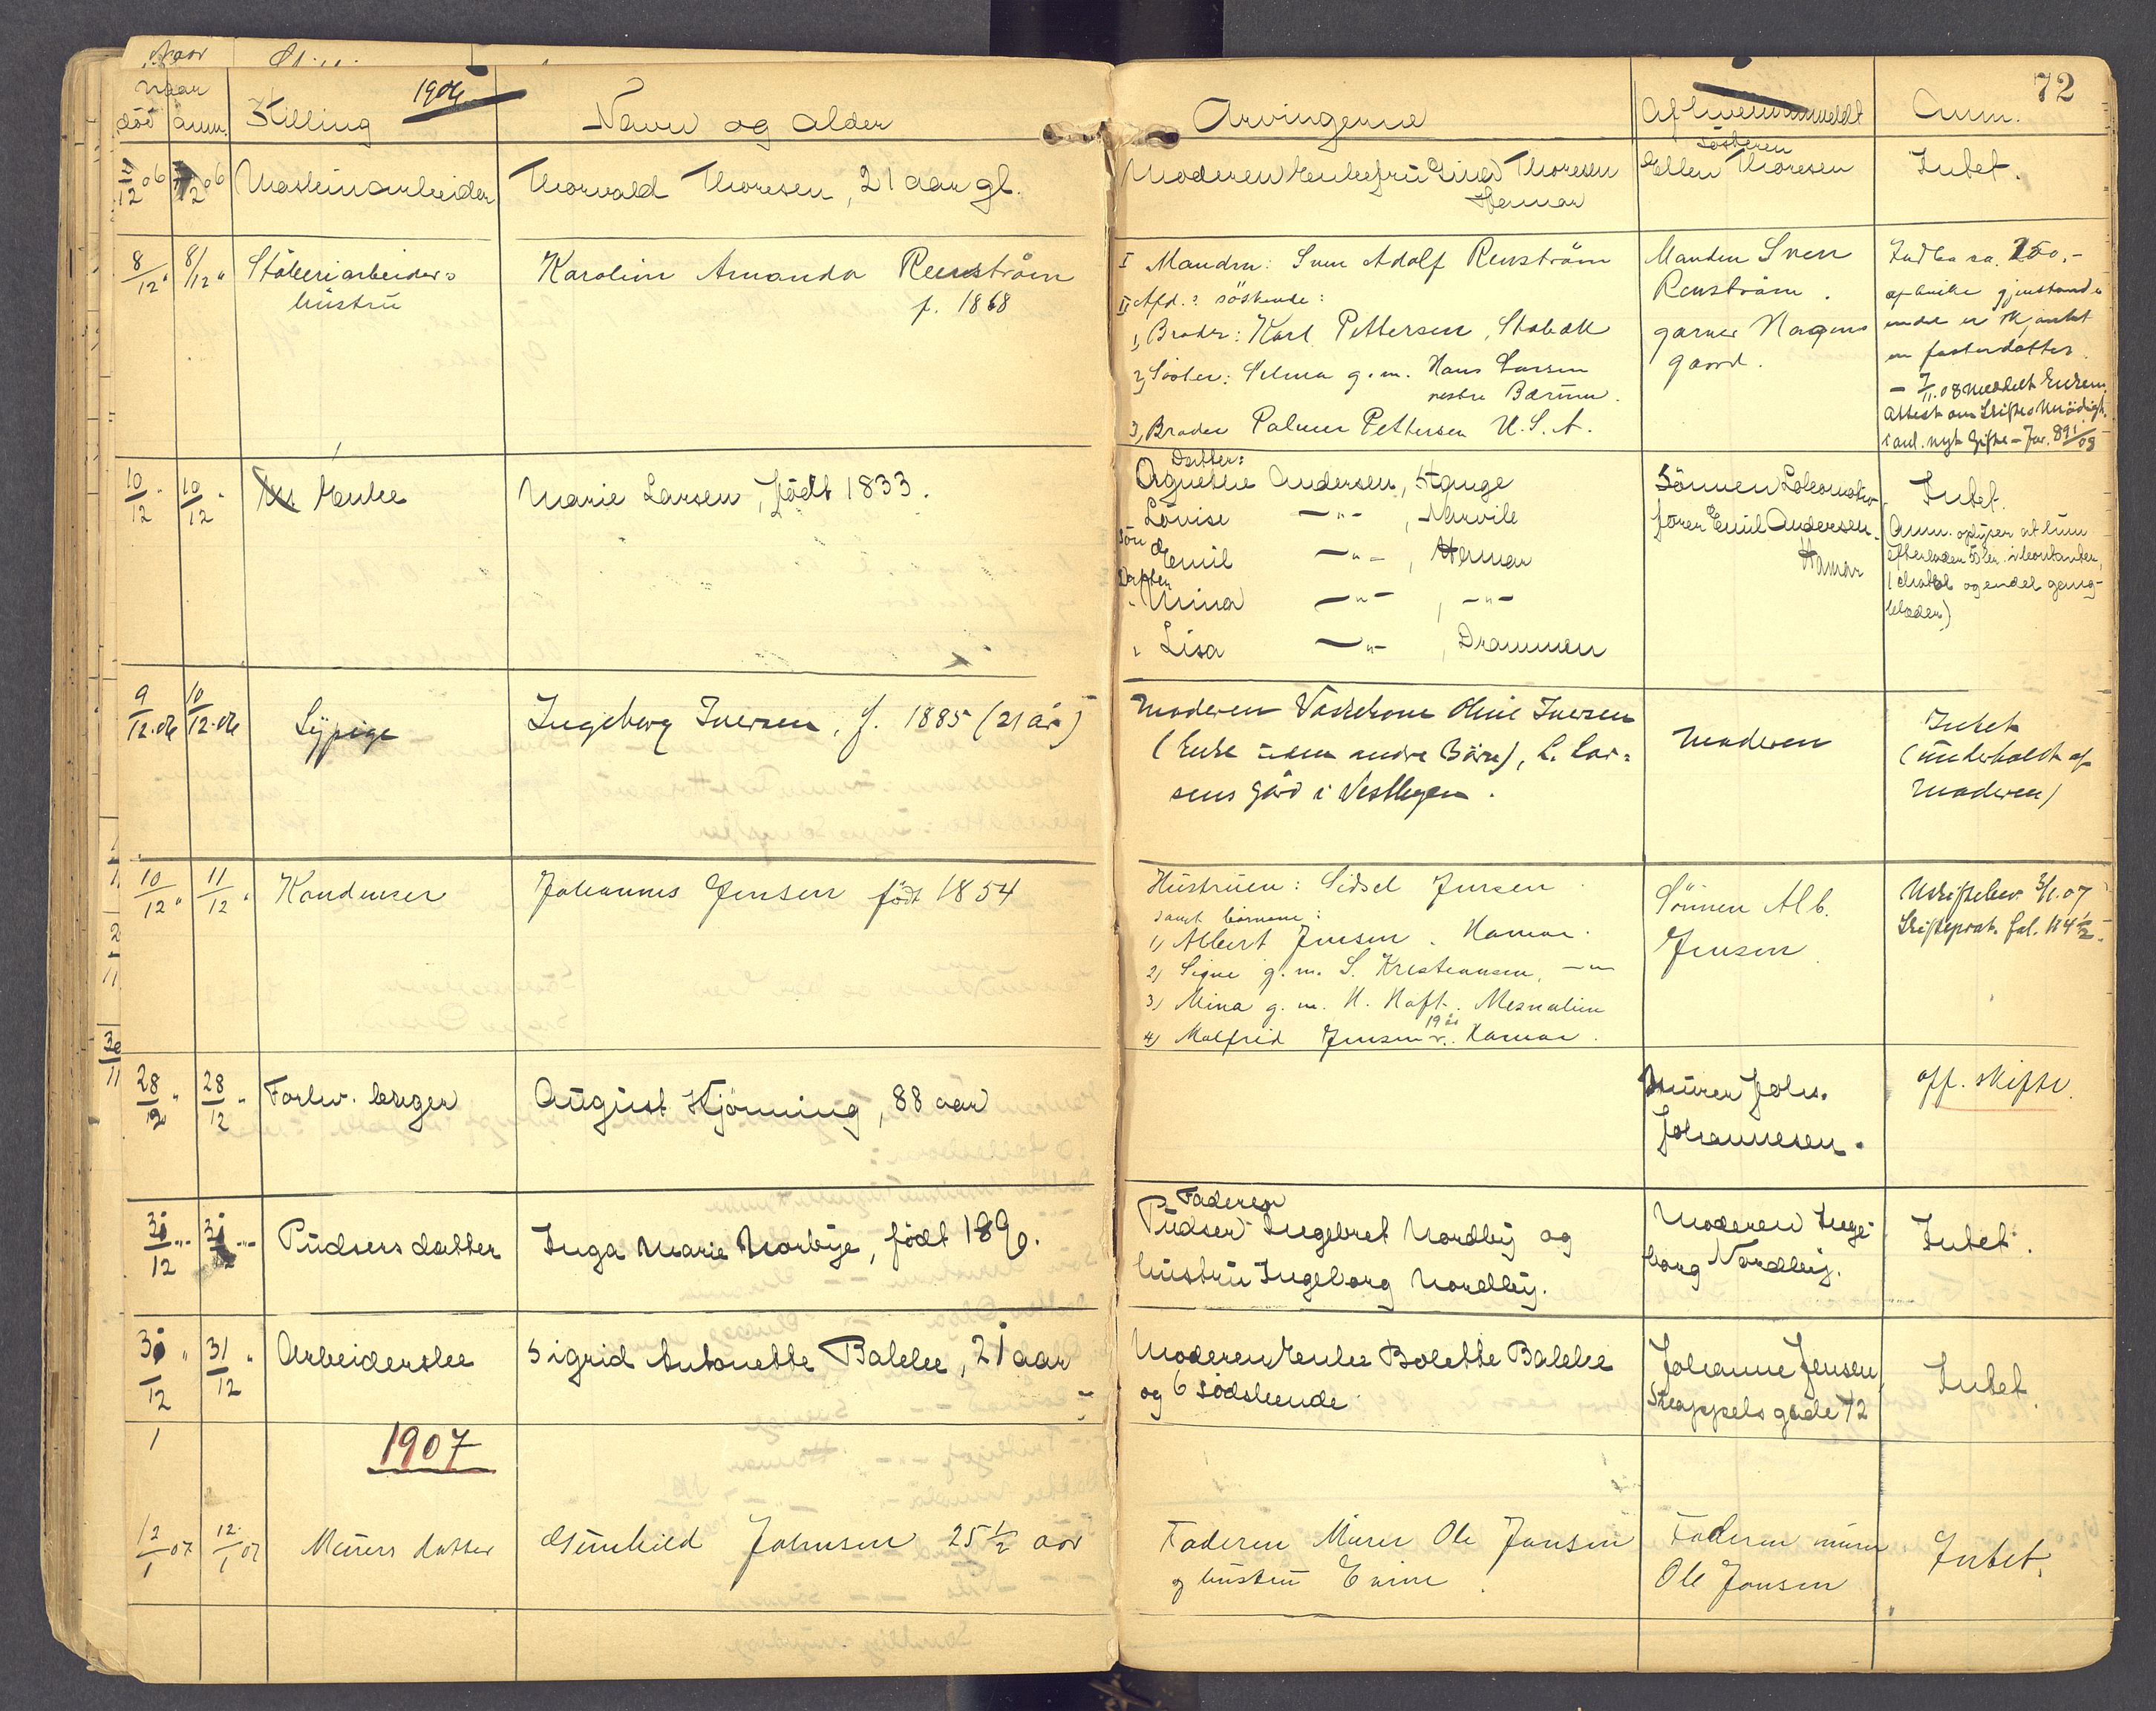 Naar
72
Naar
död anm. Stilling 1906 Navn og alder Arvingerne Af hvem anmeldt Anm.
12 06 12 06 Maskinarbeider Thorvald Thoresen, 21 aar gl. Moderen Enkefru Lina Thoresen
Hamar
Søsteren
Ellen Thoresen
Intet.
8/12 " 8/12 " Støberiarbeiders
hustru
Karoline Amanda Renström
f. 1868
I Manden: Sven Adolf Renström
II Afd.s söskende:
1, Broder: Karl Pettersen, Stabæk
2, Söster: Selma g.m. Hans Larsen
vestre Bærum.
3, Broder Palmer Pettersen U.S.A.
Manden Sven
Renström.
garver Hagens
gaard.
Indbo ca. 250,-
af hvilke gjenstande
endel er skjænket
en fosterdatter.
- 7/11.08 meddelt Enkem.
Attest om Skifte
i anl. nyt Gifte - Jnr. 891/08
10/12 " 10/12 " Enke
Marie Larsen, født 1833.
Datter:
Agnethe Andersen, Stange
Lovise -"- , Narvik
Sön Emil -"- , Hamar
Datter
" Mina -"- , -"-
" Lisa -"- , Drammen
Sönnen Lokomotiv-
fører Emil Andersen.
Hamar
Intet.
Anm. oplyser at hun
efterlader 50 kr. i kontanter,
1 chatol og endel gang-
klæder)
9/12.06 10/12.06 Sypige
Ingeborg Iversen, f. 1885 (21 år)
Moderen Vaskekone Oline Iversen
(Enke uden andre Börn), L. Lar-
sens gård i Vestbyen.
Moderen
Intet
(underholdt af
Moderen)
10/12 " 11/12 " Konduker
Johannes Jensen født 1854
Hustruen: Sidsel Jensen
samt börnene:
1) Albert Jensen. Hamar.
2) Signe g.m. S. Kristiansen, -"-
3) Mina g.m. H. Haft. Mesnalien
4) Malfrid Jensen 19 år. Hamar.
Sönnen Alb.
Jensen.
Uskiftebev. 3/1.07
Skifteprot. fol. 184 1/2.
28/12 " 28/12 " Forhv. bruger
August Kjönning, 88 aar
Murer Johs.
Johannesen.
off. skifte.
31/12 " 31/12 " Pudsers datter
Inga Marie Norbye, födt 1896.
Faderen
Pudser Ingebret Nordby og
hustru Ingeborg Nordby.
Moderen Inge-
borg Nordby.
Intet.
30/12 " 31/12 " Arbeiderske
Sigrid Antonette Bakke, 21 aar
Moderen Enke Bolette Bakke
og 6 södskende
Johanne Jensen,
Skappels gade 72
Intet.
1907
12/1 07 12/1 07 Murers datter
Gunhild Johnsen 25 1/2 aar
Faderen Murer Ole Jonsen
og hustru Evine.
Faderen murer
Ole Jonsen
Intet.